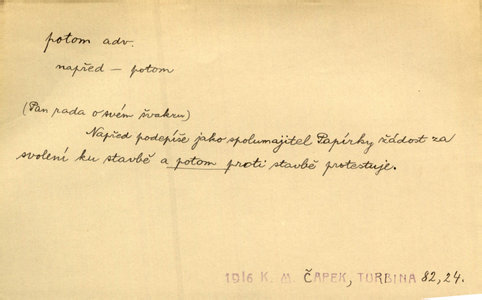 potom adv.
napřed — potom
(Pan rada o svém švakru)
Napřed podepíše jako spolumajitel Papírky žádost za
svolení ku stavbě a potom proti stavbě protestuje.
1916 K. M. ČAPEK, TURBINA 82, 24.